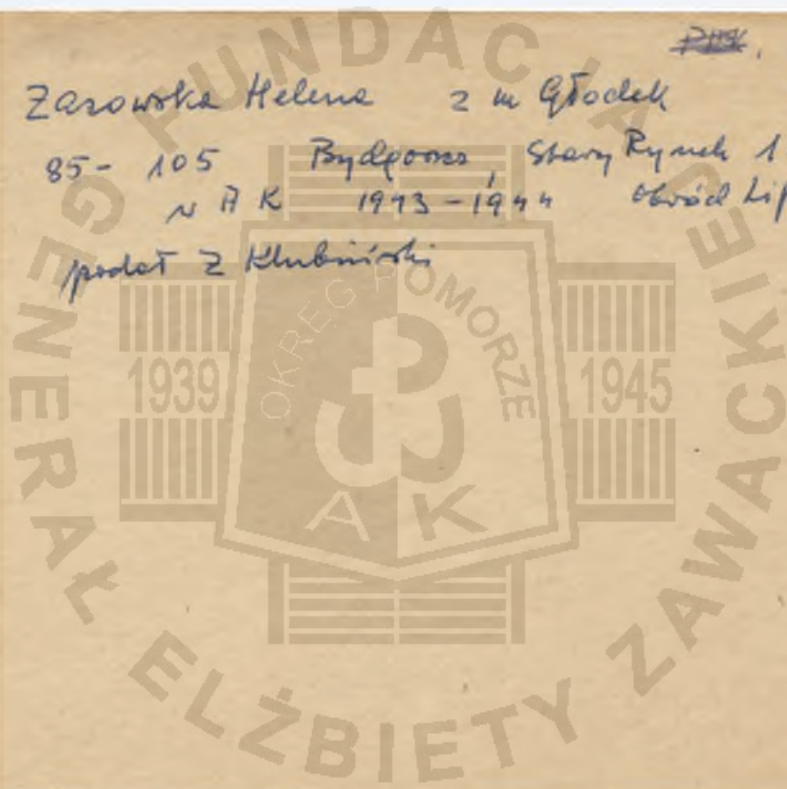 Zarowska Helena z m Głodek
85-105 Bydgoszcz, Stary Rynek 1
w AK 1943-1944 Obwód Lip
podał Z Klubiński
FUNDACJA
GENERAŁ ELŻBIETY ZAWACKIEJ
OKRĘG POMORZE
1939 1945
AK